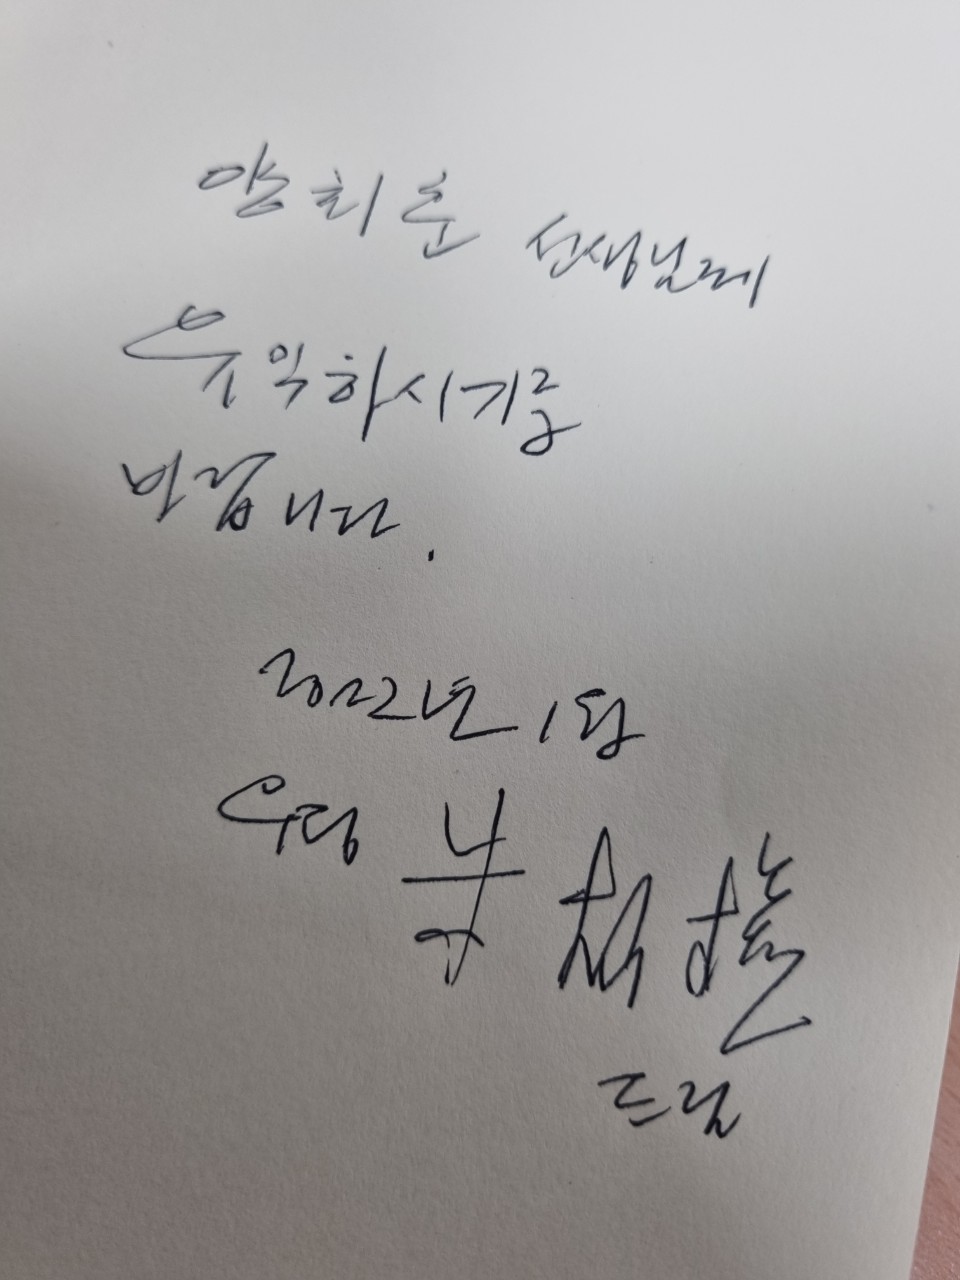 양회춘 선생님께
유익하시기를
바랍니다.
2022년 1월
우당
드림